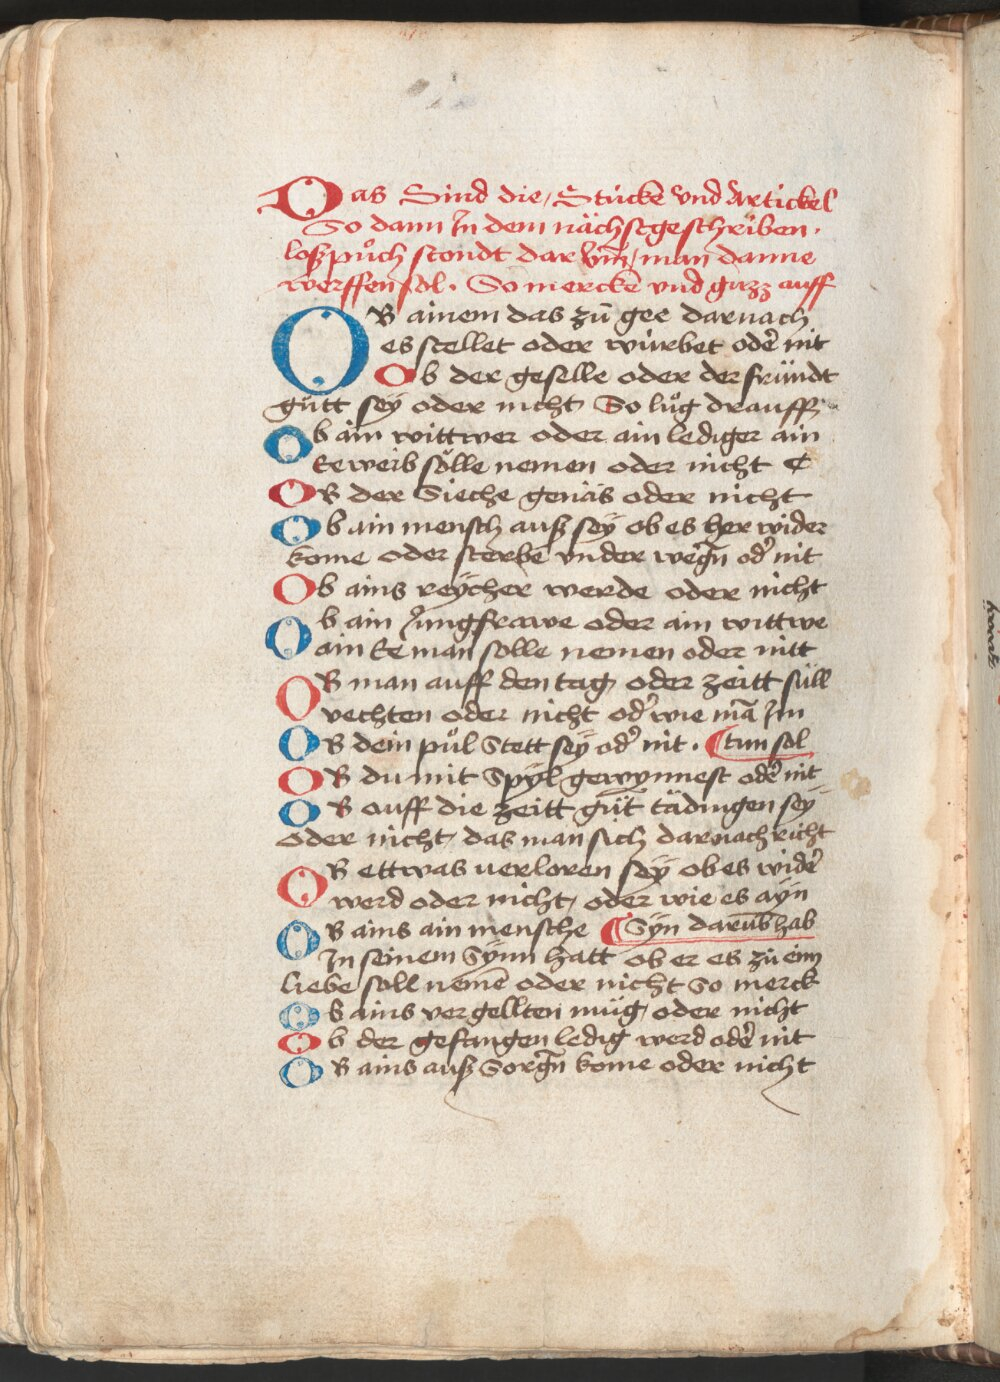 Das Sind die, Stucke vnd Artickel
So dann Jn dem nächstgeschriben.
loßpuͦch stondt dar vm̃, man danne
werffen sol. So mercke vnd gazz auff
OB ainem das zu gee darnach
es stellet oder wurbet odeꝛ nit
Ob der geselle oder der fründt
gutt sey oder nicht So luͦg drauff
Ob ain wittwer oder ain lediger ain
Eeweib sölle nemen oder nicht
OB der Sieche genäs oder nicht
Ob ain mensch auß sey ob es her wider
kome oder sterbe vnder wegñ od' nit
Ob ains reycher werde oder nicht
Ob ain Jungfrawe oder ain wittwe
ain Eeman solle nemen oder nitt
OB man auff den tag, oder zeitt süll
vechten oder nicht od' wie mã Jm
OB dein puͦl Stett sey od' nit. ¶ tun sol
OB du mit Spyl gewynnest odeꝛ nit
OB ouff die zeitt guͤt tädingen sey
oder nicht, das man sich darnach richt
OB ettwas verloren sey ob es wideꝛ
werd oder nicht, oder wie es ayn
OB ains ain mensche ¶ Syn darũb hab
Jn seinem Synn hatt ob er es zu eim
liebe soll nemẽ oder nicht So merck
Ob ains vergellten müg, oder nicht
Ob der gefangen ledig werd odeꝛ nit
OB ains auß Sorgñ kome oder nicht